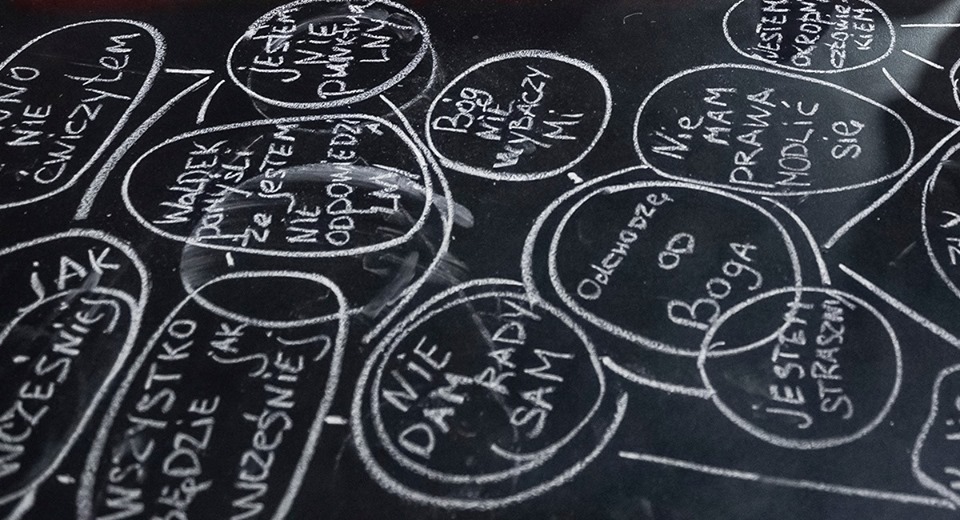 NIE
ĆWICZYŁEM
JESTEM
NIE
PUNKTUA
LNY
BÓG
NIE
WYBACZY
MI
JESTEM
OKROPNYM
CZŁOWIE
KIEM
Nie
MAM
PRAWA
MODLIĆ
się
WALDEK
POMYŚLI
że JESTEM
NIE
ODPOWIEDZIA
LNY
Odchodzę
OD
BOGA
JESTEM
STRASZNY
NIE
DAM RADY
SAM
WSZYSTKO
BĘDZIE
JAK
WCZEŚNIEJ
JAK
WCZEŚNIEJ